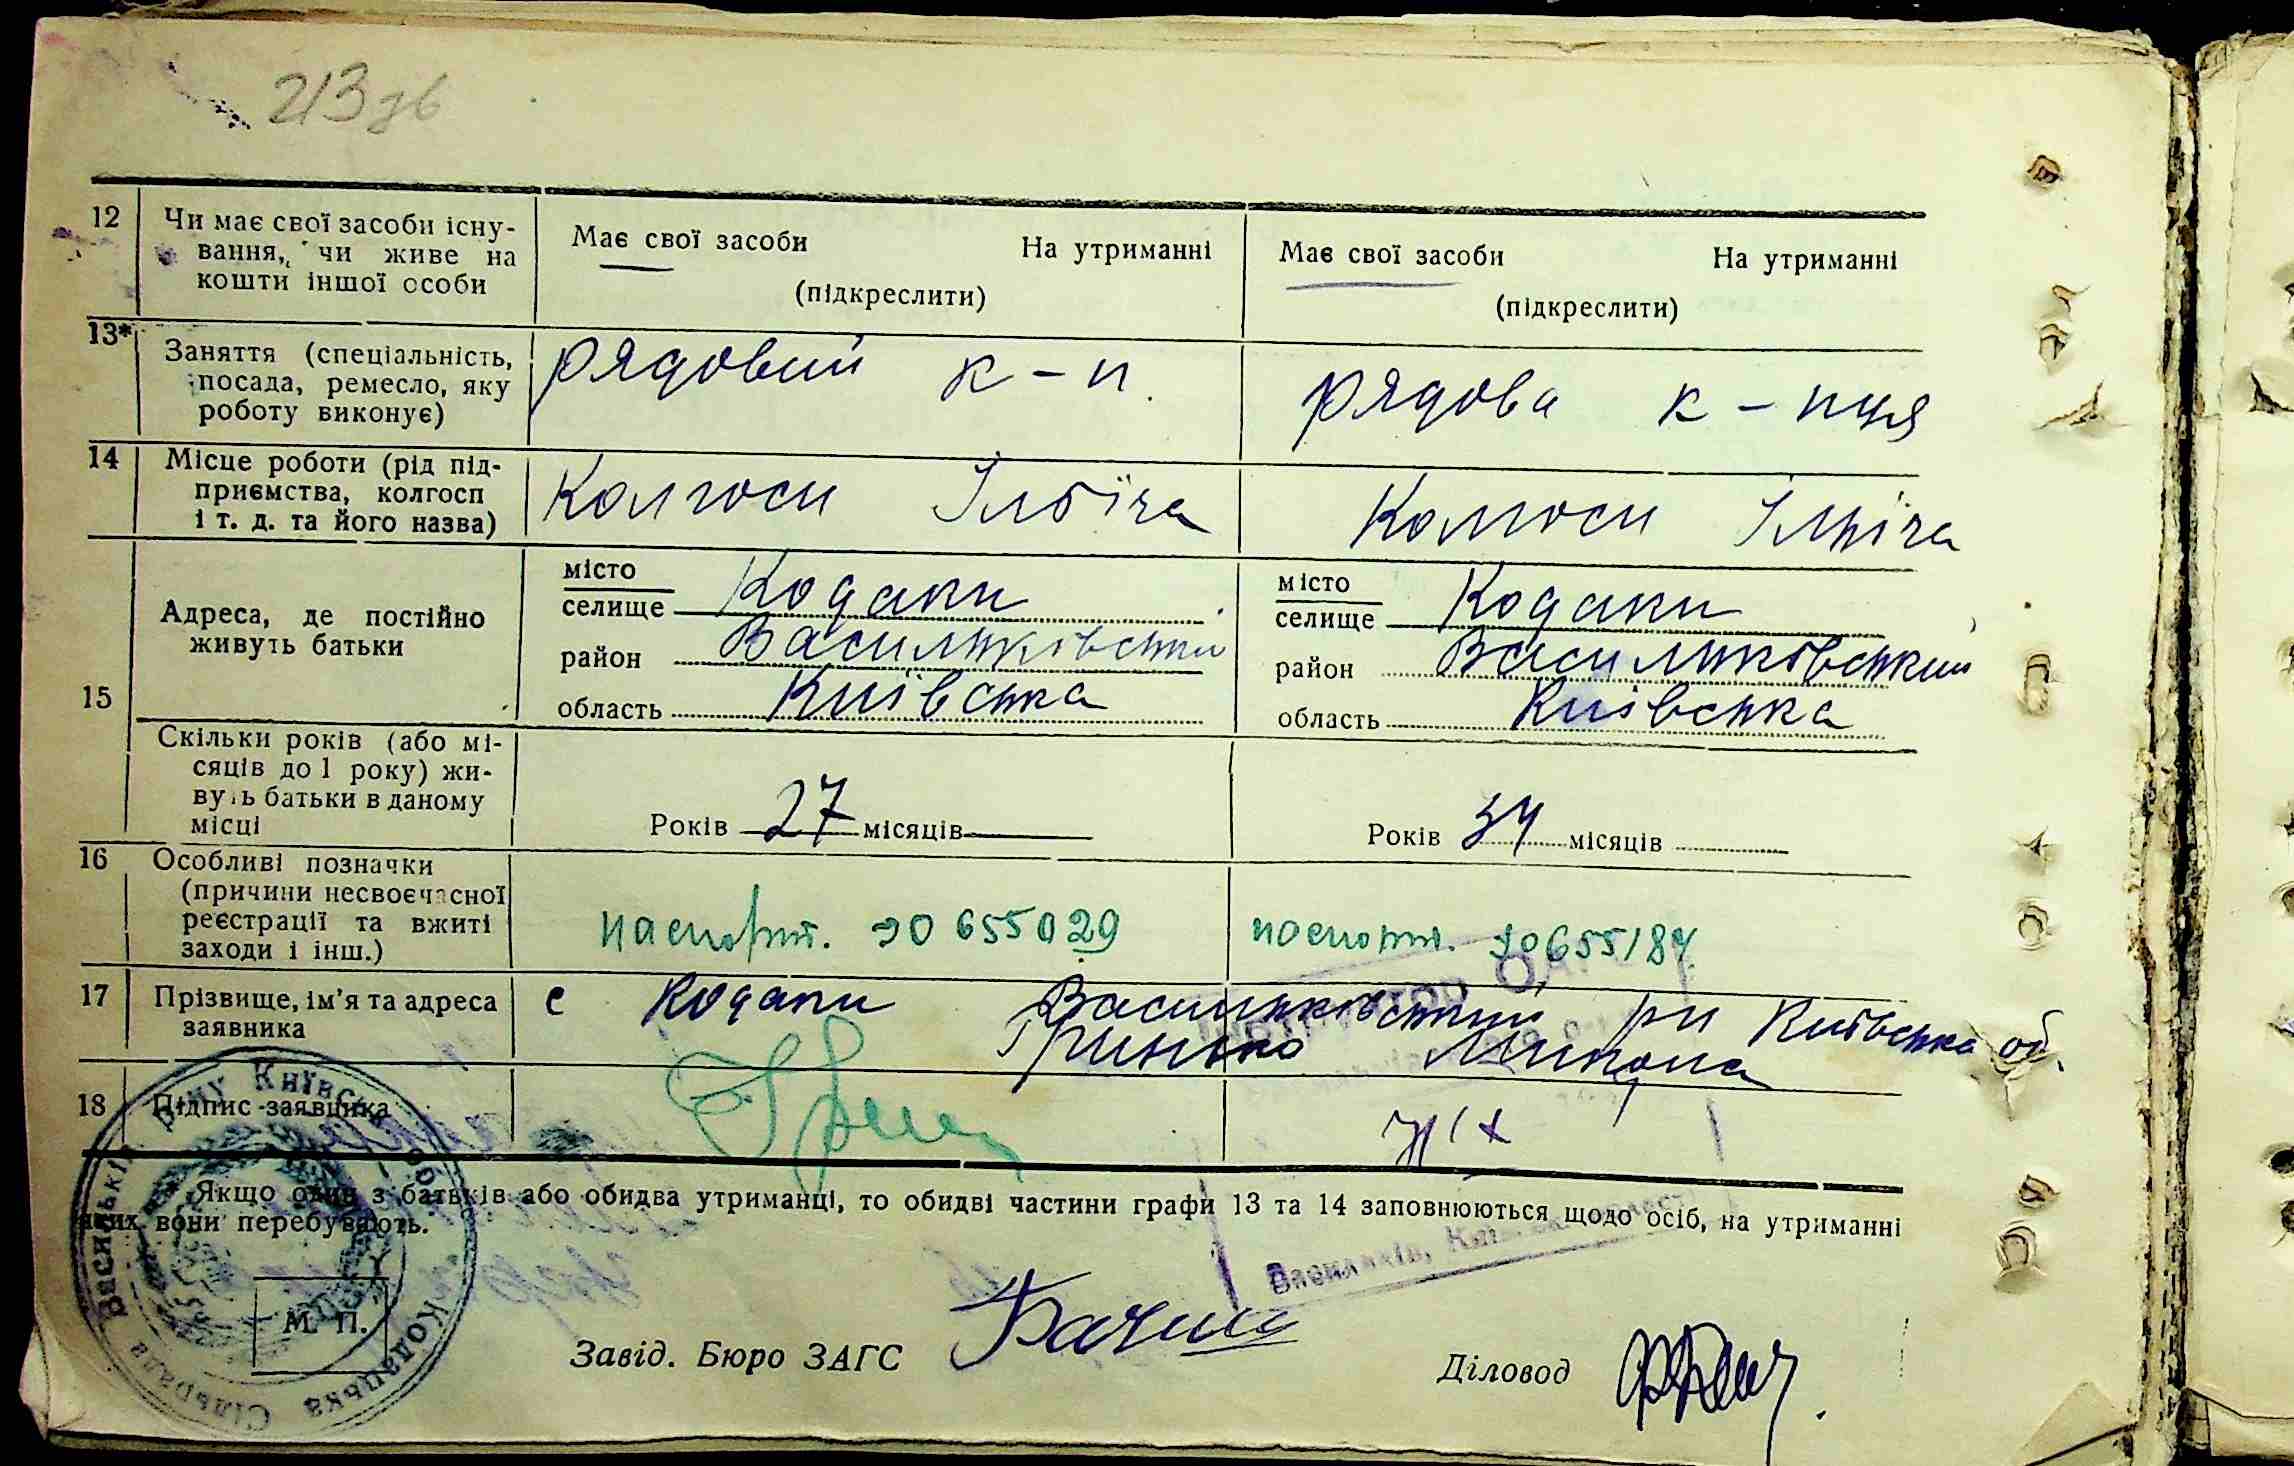 213 зв
12 Чи має свої засоби існу-
вання, чи живе на
кошти іншої особи
Має свої засоби На утриманні
(підкреслити)
Має свої засоби На утриманні
(підкреслити)
13* Заняття (спеціальність,
посада, ремесло, яку
роботу виконує)
рядовий к-п
рядова к-пця
14 Місце роботи (рід під-
приємства, колгосп
і т. д. та його назва)
Колгосп Ілліча
Колгосп Ілліча
15
Адреса, де постійно
живуть батьки
місто
селище Кодаки
район Васильківський
область Київська
місто
селище Кодаки
район Васильківський
область Київська
Скільки років (або мі-
сяців до 1 року) жи-
вуть батьки в даному
місці
Років 27 місяців
Років 34 місяців
16 Особливі позначки
(причини несвоєчасної
реєстрації та вжиті
заходи і інш.)
паспорт. 655029
паспорт. 655184
17 Прізвище, ім'я та адреса
заявника
с Кодаки Васильківський рн Київська об.
Гринько Микола
18 Підпис заявника
Якщо один з батьків або обидва утриманці, то обидві частини графи 13 та 14 заповнюються щодо осіб, на утриманні
яких вони перебувають.
Васильків, Київ
М. П.
Кодацька Сільрада Васильків р-ну Київськ обл.
Завід. Бюро ЗАГС
Діловод